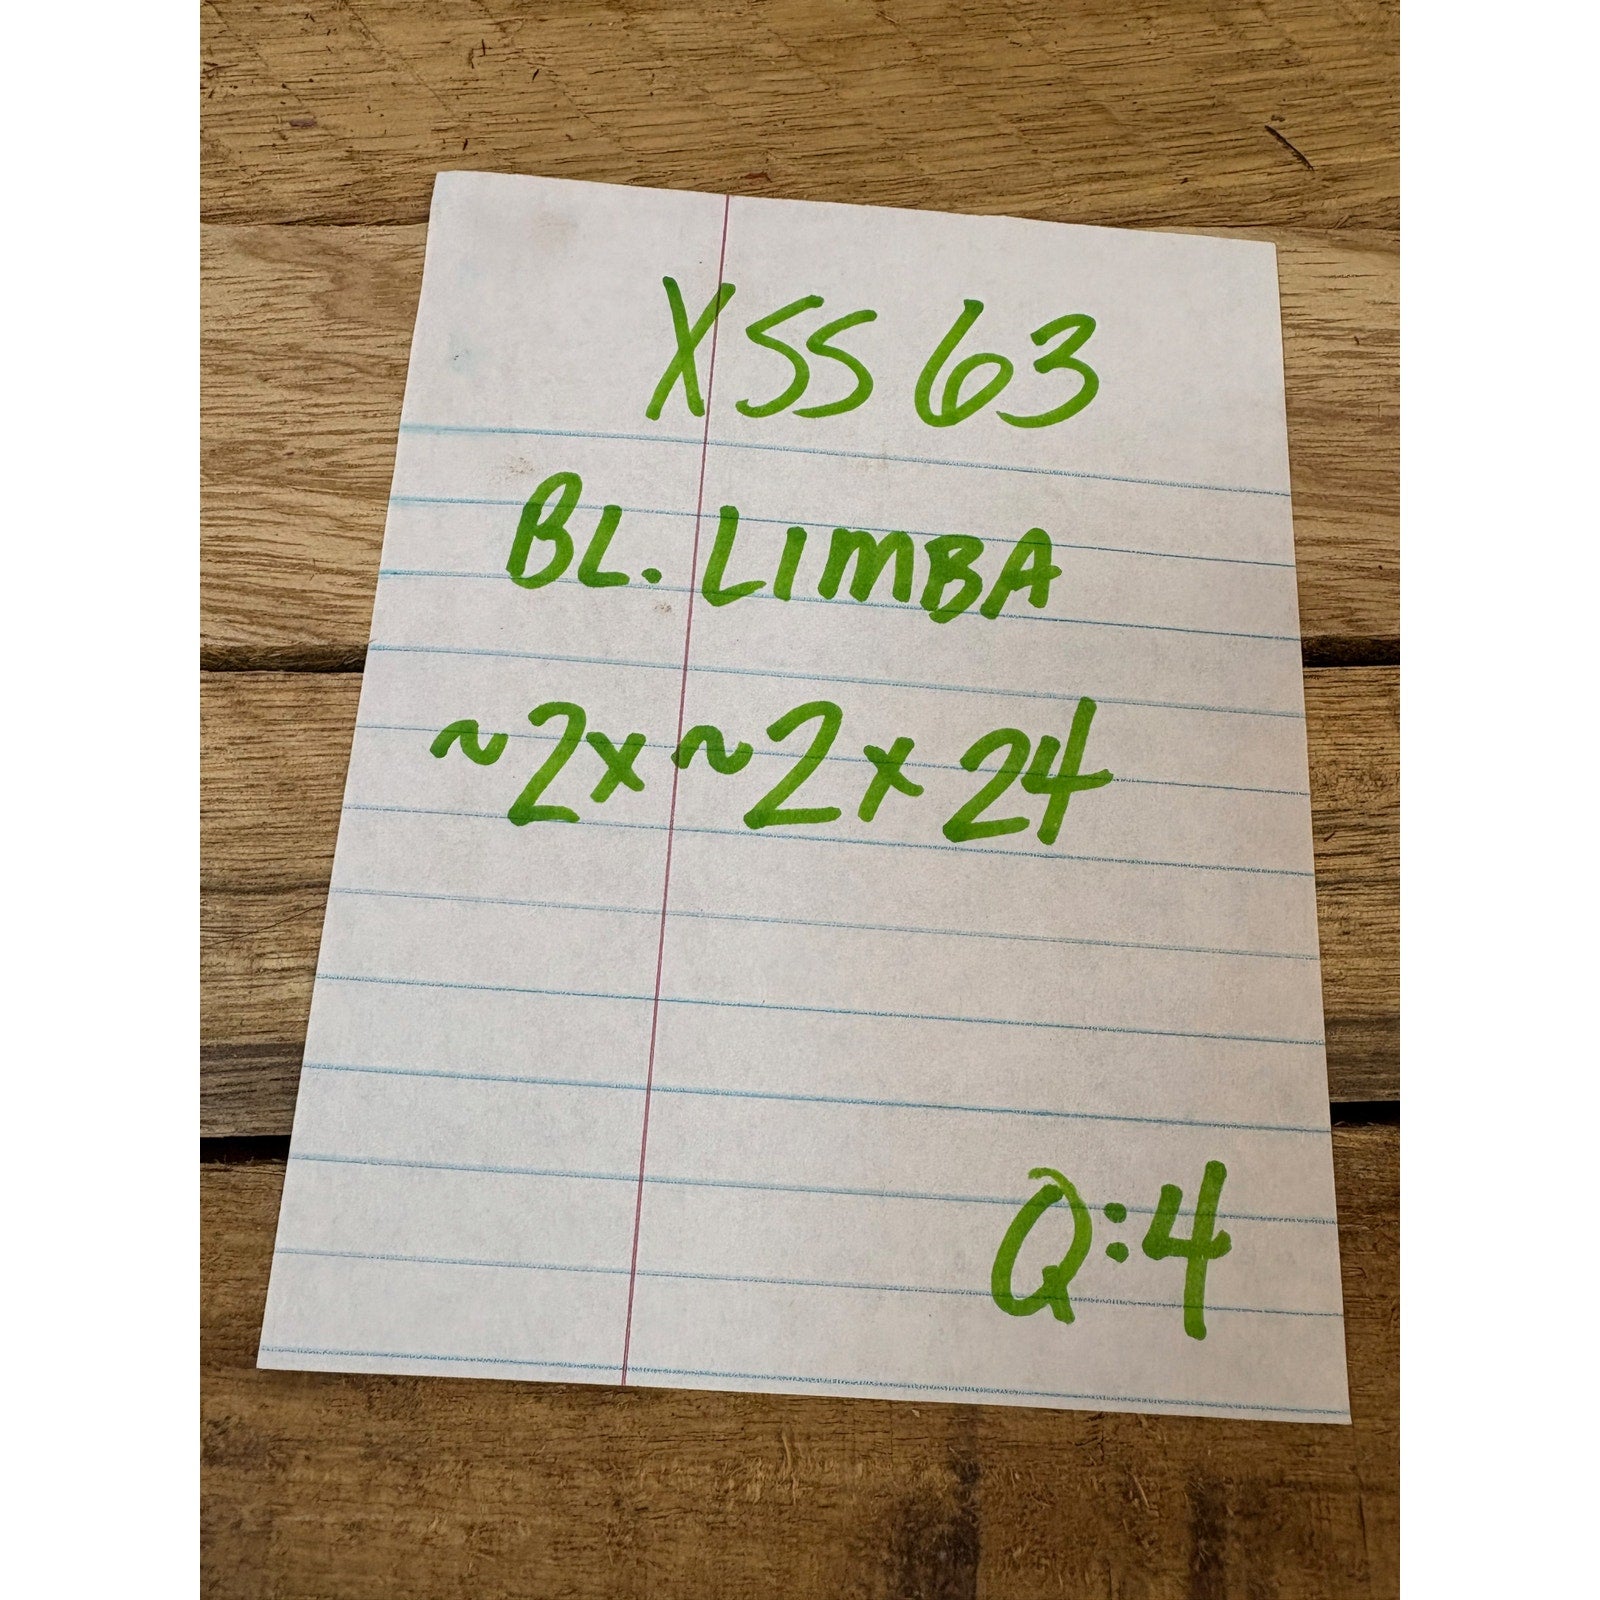 XSS 63
BL. LIMBA
~2x ~2x 24
Q:4